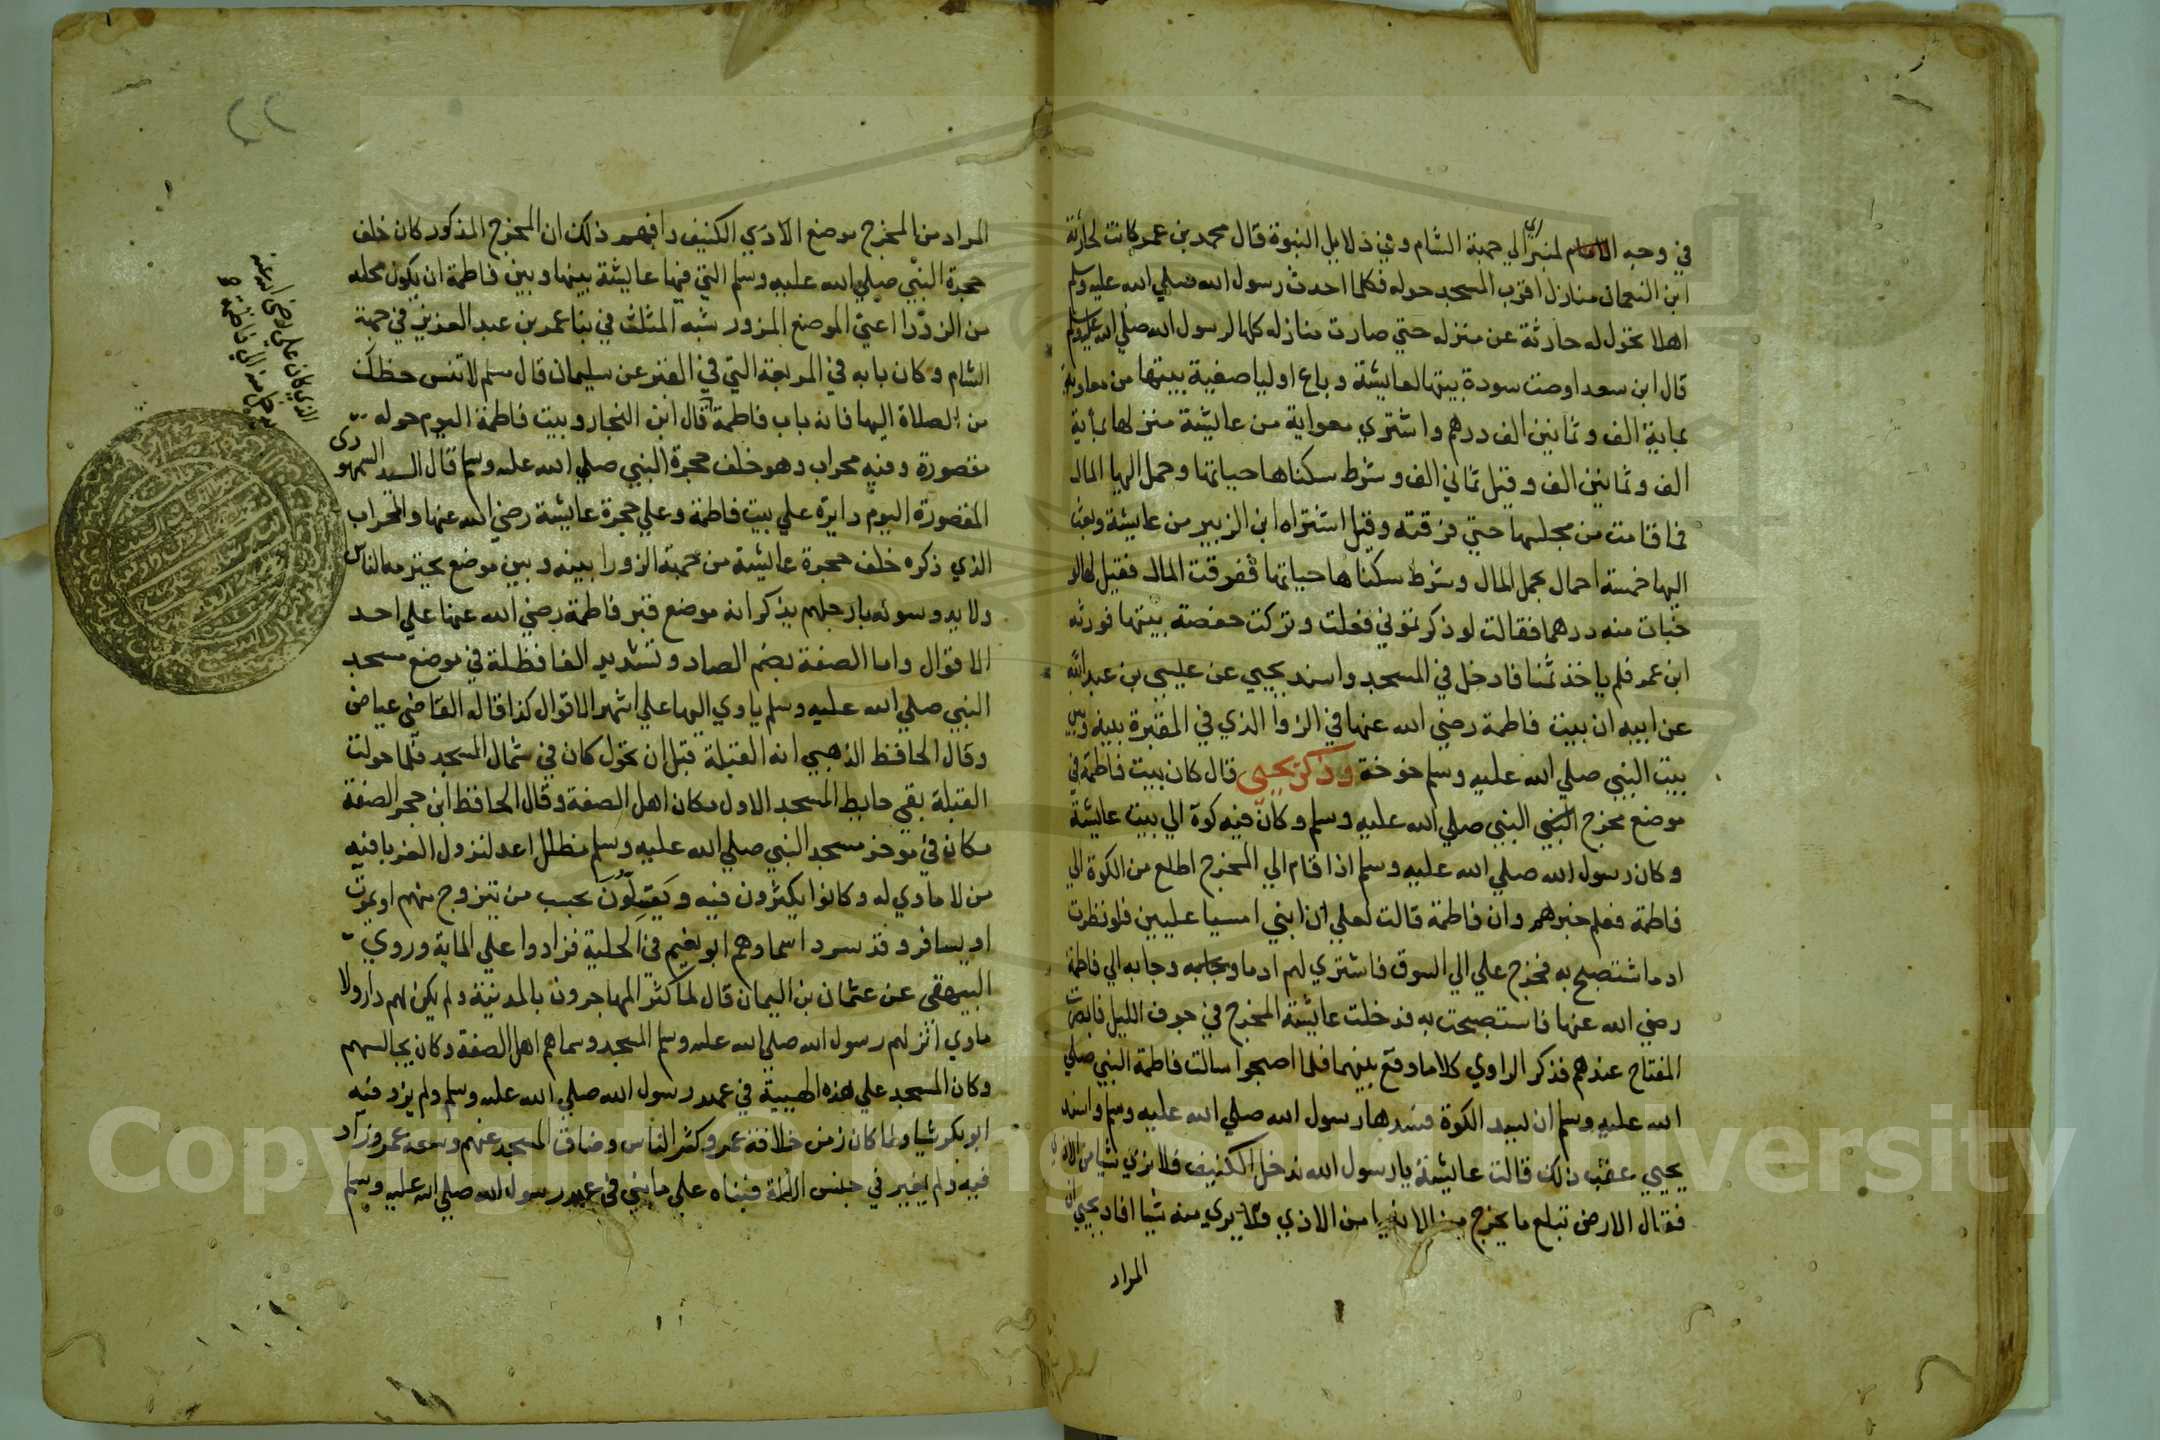 في وجه الامام لمنبري الي جهة الشام وفي دلايل النبوة قال محمد بن عمر كانت لحارثة
ابن النعمان منازل اقرب المسجد حوله فكلما احدث رسول الله صلي الله عليه وسلم
اهلا تحول له حارثة عن منزله حتي صارت منازله كلها لرسول الله صلي الله عليه وسلم
قال ابن سعد اوصت سودة ببيتها لعايشة وباع اوليا صفية بيتها من معاوية
بماية الف وثمانين الف درهم واشتري معواية من عايشة منزلها بماية
الف وثمانين الف وقيل ثماني الف وشرط سكناها حياتها وحمل اليها المال
فما قامت من مجلسها حتي فرقته وقيل اشتراه ابن الزبير من عايشة وبعث
اليها خمسة احمال بحمل المال وشرط سكناها حياتها ففرقت المال فقيل لها لو
خبات منه درهما فقالت لو ذكرتموني فعلت وتركت حفصة بيتها فورثه
ابن عمر فلم ياخذ ثمنا فادخل في المسجد واسند يحيي عن عيسي بن عبد الله
عن ابيه ان بيت فاطمة رضي الله عنها في الزوا الذي في المقبرة بينه وبين
بيت النبي صلي الله عليه وسلم خوخة وذكر يحيي قال كان بيت فاطمة في
موضع مخرج النبي النبي صلي الله عليه وسلم وكان فيه كوة الي بيت عايشة
وكان رسول الله صلي الله عليه وسلم اذا قام الي المخرج اطلع من الكوة الي
فاطمة فعلم خبرهم وان فاطمة قالت لعلي ان ابني امسيا عليين فلو نظرت
ادما اشتصبح به فخرج علي الي السوق فاشتري لهم ادما وجا به الي فاطمة
رضي الله عنها فاستصبحت به فدخلت عايشة المخرج في جوف الليل فابصرت
المفتاح عندهم فذكر الراوي كلاما وقع بينهما فلما اصبحوا سالت فاطمة النبي صلي
الله عليه وسلم ان يسد الكوة فسدها رسول الله صلي الله عليه وسلم واسند
يحيي عقب ذلك قالت عايشة يا رسول الله ندخل الكنيف فلا نري شيا من الاذي
فقال الارض تبلع ما يخرج من الانبيا من الاذي ولا يري منه شيا افاد يحيي ان
المراد
المراد من المخرج موضع الاذي الكنيف وافهم ذلك ان المخرج المذكور كان خلف
حجرة النبي صلي الله عليه وسلم التي فيها عايشة بينها وبين فاطمة ان يكون محله
من الزورا اعني الموضع المزور شبه المثلث في بنا عمر بن عبد العزيز في جهة
الشام وكان بابه في المربعة التي في القبر عن سليمان قال مسلم لا تنس حظك
من الصلاة اليها فانه باب فاطمة قال ابن النجار وبيت فاطمة اليوم حوله
مقصورة وفيه محراب وهو خلف حجرة النبي صلي الله عليه وسلم قال السيد السمهودي
المقصورة اليوم دايرة علي بيت فاطمة وعلي حجرة عايشة رضي الله عنها والمحراب
الذي ذكره خلف حجرة عايشة من جهة الزورا بينه وبين موضع يحترمه الناس
ولا يدوسونه بارجلهم يذكر انه موضع قبر فاطمة رضي الله عنها علي احد
الاقوال واما الصفة بضم الصاد وتشديد الفا فظلة في موضع مسجد
النبي صلي الله عليه وسلم ياوي اليها علي اشهر الاقوال كذا قاله القاضي عياض
وقال الحافظ الذهبي انه القبلة قبل ان تحول كان في شمال المسجد فلما حولت
القبلة بقي حايط المسجد الاول مكان اهل الصفة وقال الحافظ ابن حجر الصفة
مكان في موخر مسجد النبي صلي الله عليه وسلم مظلل اعد لنزول الغربا فيه
من لا ماوي له وكانوا يكثرون فيه ويقلون بحسب من يتزوج منهم او يموت
او يسافر وقد سرد اسماوهم ابو نعيم في الحلية فزادوا علي الماية وروي
البيهقي عن عثمان بن اليمان قال لما كثر المهاجرون بالمدينة ولم يكن لهم دار ولا
ماوي انزلهم رسول الله صلي الله عليه وسلم المسجد وسماهم اهل الصفة وكان يجالسهم
وكان المسجد علي هذه الهيبية في عهد رسول الله صلي الله عليه وسلم ولم يزد فيه
ابو بكر شيا ولما كان زمن خلافة عمر وكثر الناس وضاق المسجد عنهم وسعه عمر وزاد
فيه ولم يغير في جنس الالة فبناه علي ما بني في عهد رسول الله صلي الله عليه وسلم
الذي كان علي رضي الله عنه
يدخل منه الي فاطمة
٢٢
Copyright © King Saud University